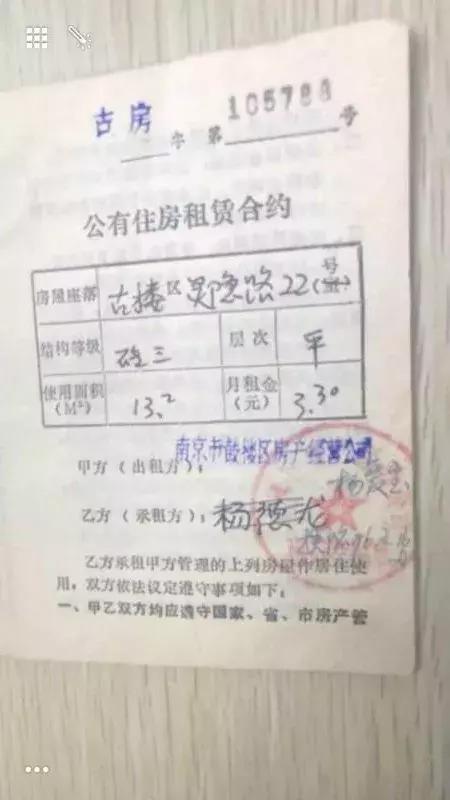 古房
字 第 105788 号
公有住房租赁合约
房屋座落 古楼区 22 号
结构等级 砖三 层次 平
使用面积 (M²) 13.2 月租金 (元) 3.30
南京市鼓楼区房产经营公司
甲方（出租方）：
乙方（承租方）：杨德龙
乙方承租甲方管理的上列房屋作居住使
用，双方依法议定遵守事项如下：
一、甲乙双方均应遵守国家、省、市房产管